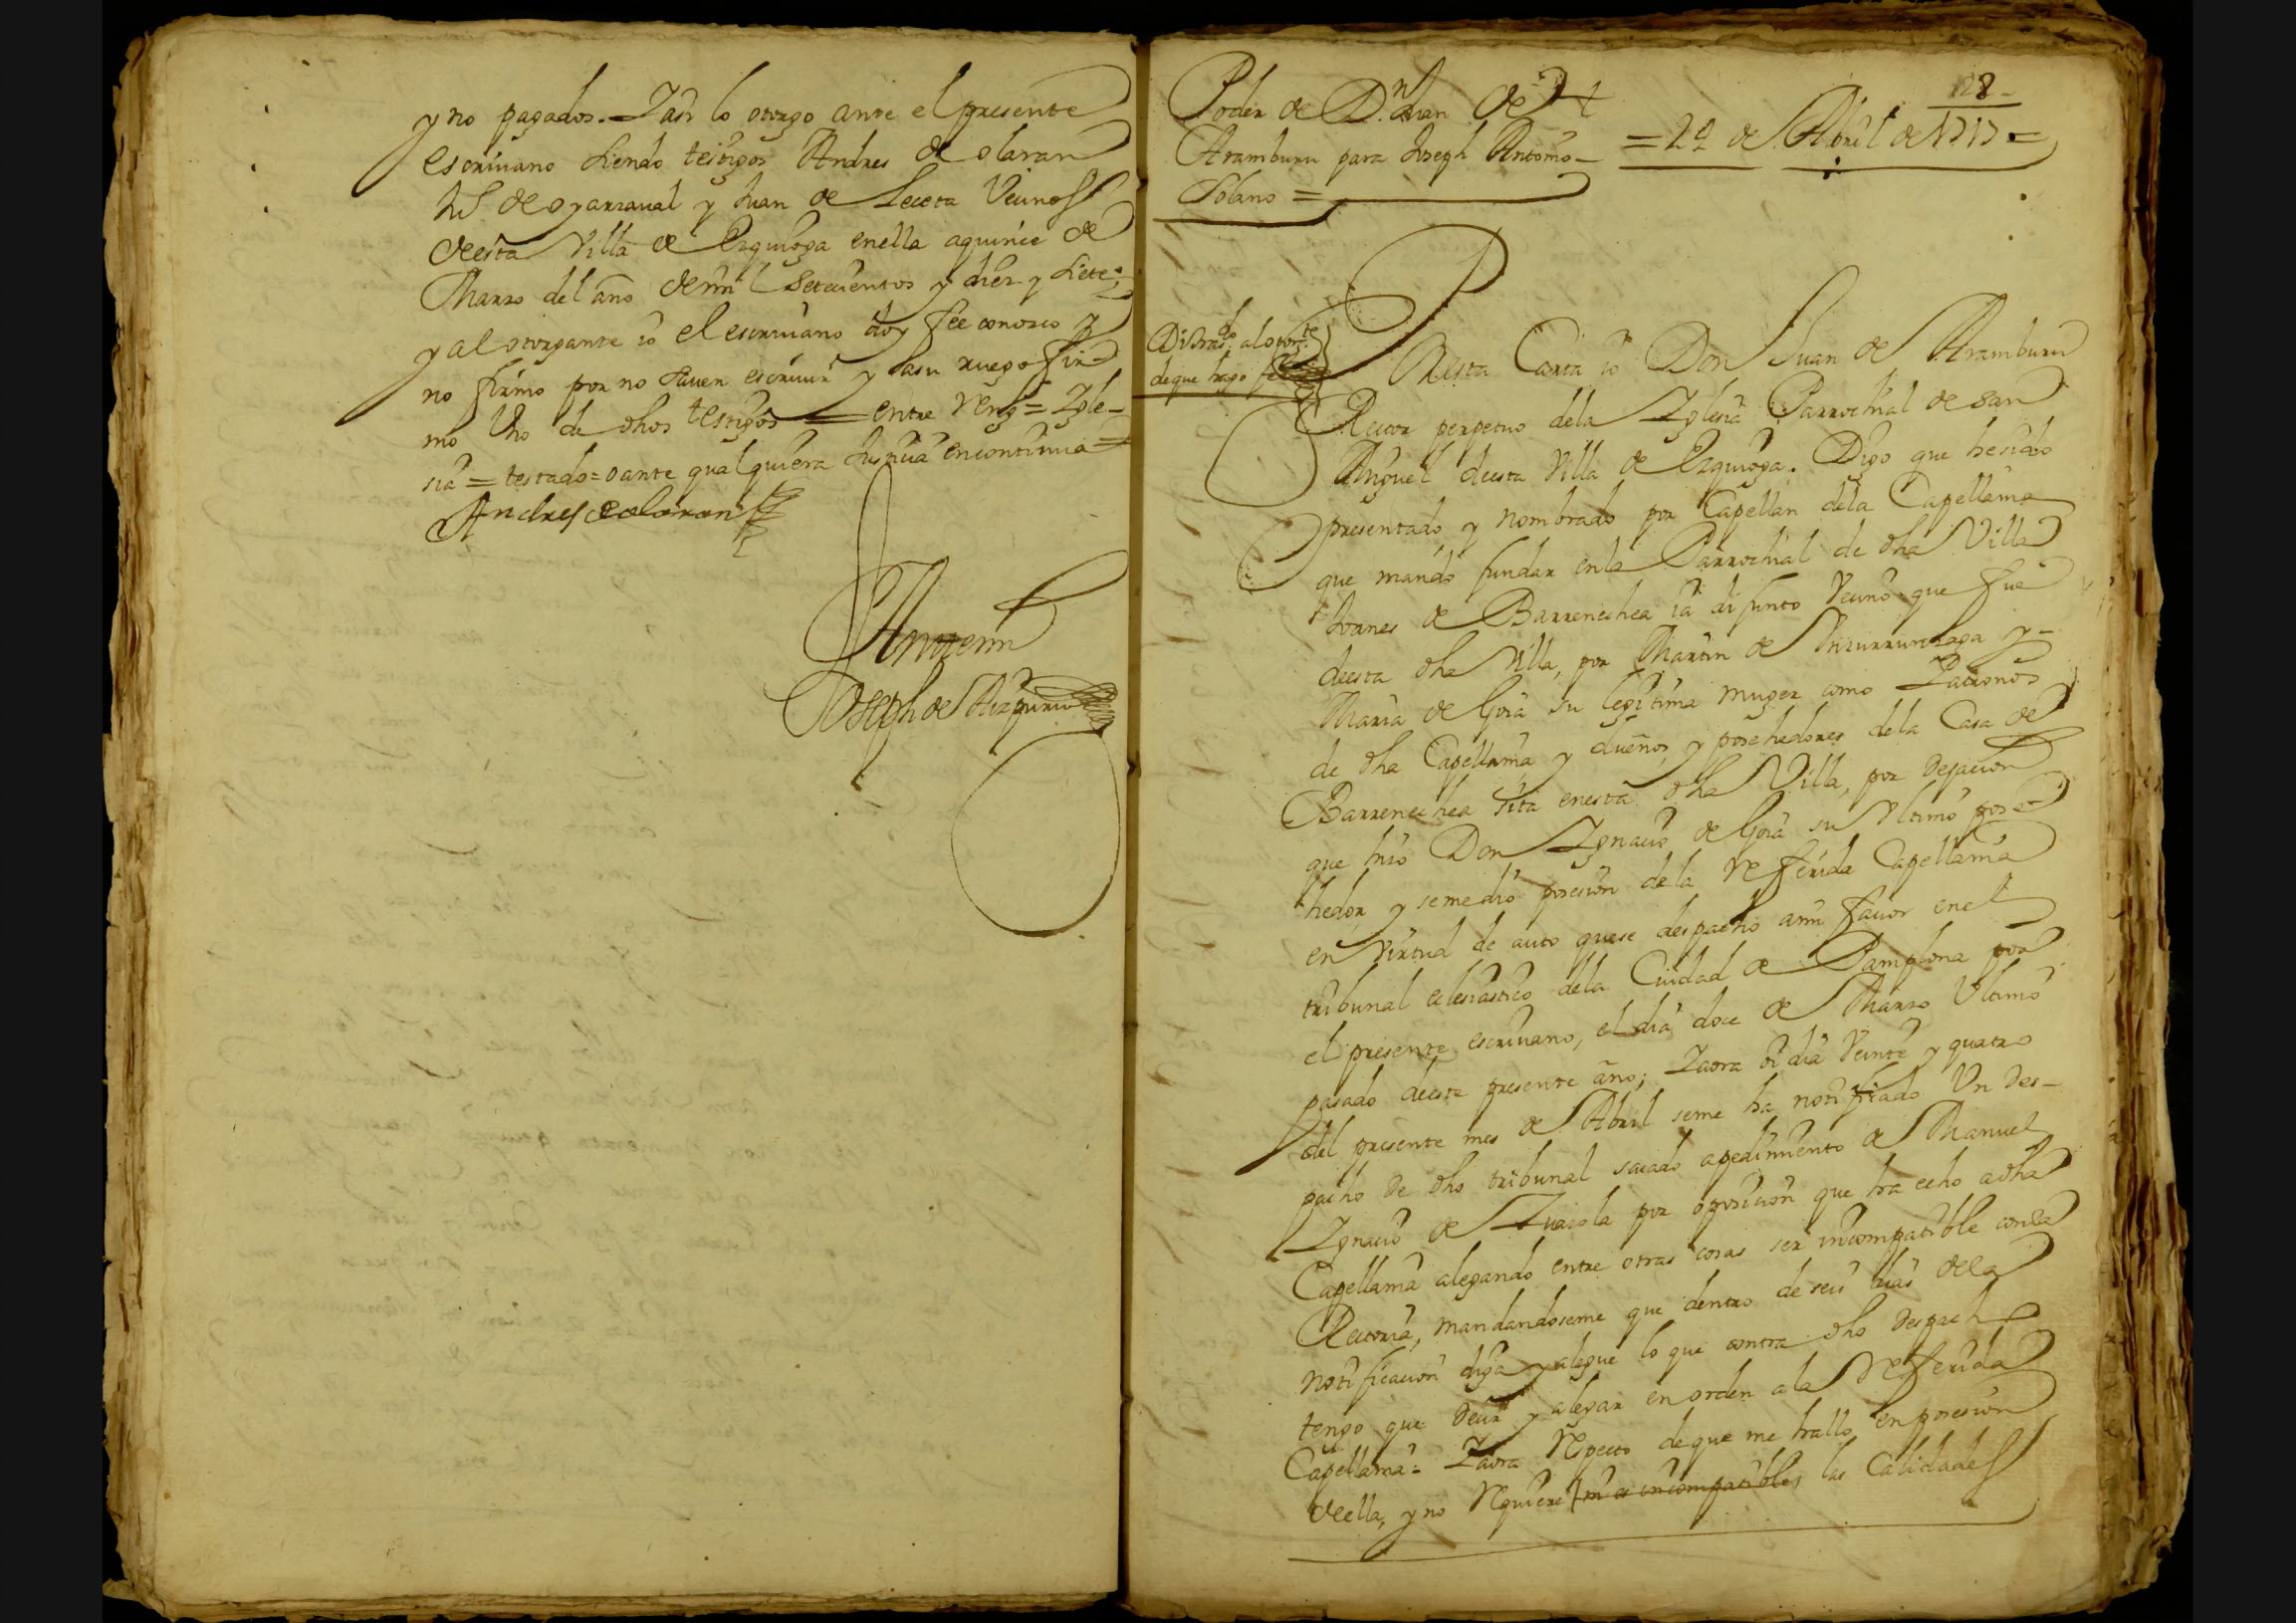 y no pagados. Y asi lo otorgo ante el presente
escriuano siendo testigos Andres de olaran
de oyarzaual y Juan de Leceta Vecinos
de esta Villa de Ezquioga en ella a quince de
Marzo del año de mil Setecientos y diez y siete;
y al otorgante io el escriuano doy fee conozco y
no firmo por no sauer escriuir y a su ruego fir-
mo Uno de dhos testigos = entre Reng = Igle-
sia = testado = o ante qualquiera Justicia en continua =
Andres de olaran
Ante mi
Joseph de Aizpuru
128
Poder de D.n Juan de
Aramburu para Joseph Antonio
Solano =
= 24 de Abril de 1717 =
Di tras.do al otorg.te
de que hago fee
Por esta Carta io Don Juan de Aramburu
Rector perpetuo dela Iglesia Parrochial de san
Miguel de esta Villa de Ezquioga. Digo que he sido
presentado y nombrado por Capellan dela Capellania
que mando fundar en la Parrochial de dha Villa
Joanes de Barrenechea ia difunto Vecino que fue
de esta dha Villa, por Martin de Yrizurrunzaga y
Maria de Goia su legitima muger como Patronos
de dha Capellania y dueños, y posehedores dela Casa de
Barrenechea sita en esta dha Villa, por dejacion
que hizo Don Ignacio de Goia su Vltimo pose-
hedor y se me dio posesion dela Refferida Capellania
en virtud de auto que se despacho a mi fauor en el
tribunal eclesiastico dela Ciudad de Pamplona por
el presente escriuano, el dia doce de Marzo Vltimo
pasado de este presente año; Y aora oi dia Veinte y quatro
del presente mes de Abril se me ha notificado Un des-
pacho de dho tribunal sacado a pedimiento de Manuel
Ignacio de Zuazola por oposicion que ha echo a dha
Capellania alegando entre otras cosas ser incompatible con la
Rectoria, mandandoseme que dentro de seis dias dela
notificacion diga y alegue lo que contra dho despacho
tengo que decir y alegar en orden a la Refferida
Capellania = Y aora Respecto de que me hallo en posesion
de ella, y no Requiere ni es incompatible, las Calidades